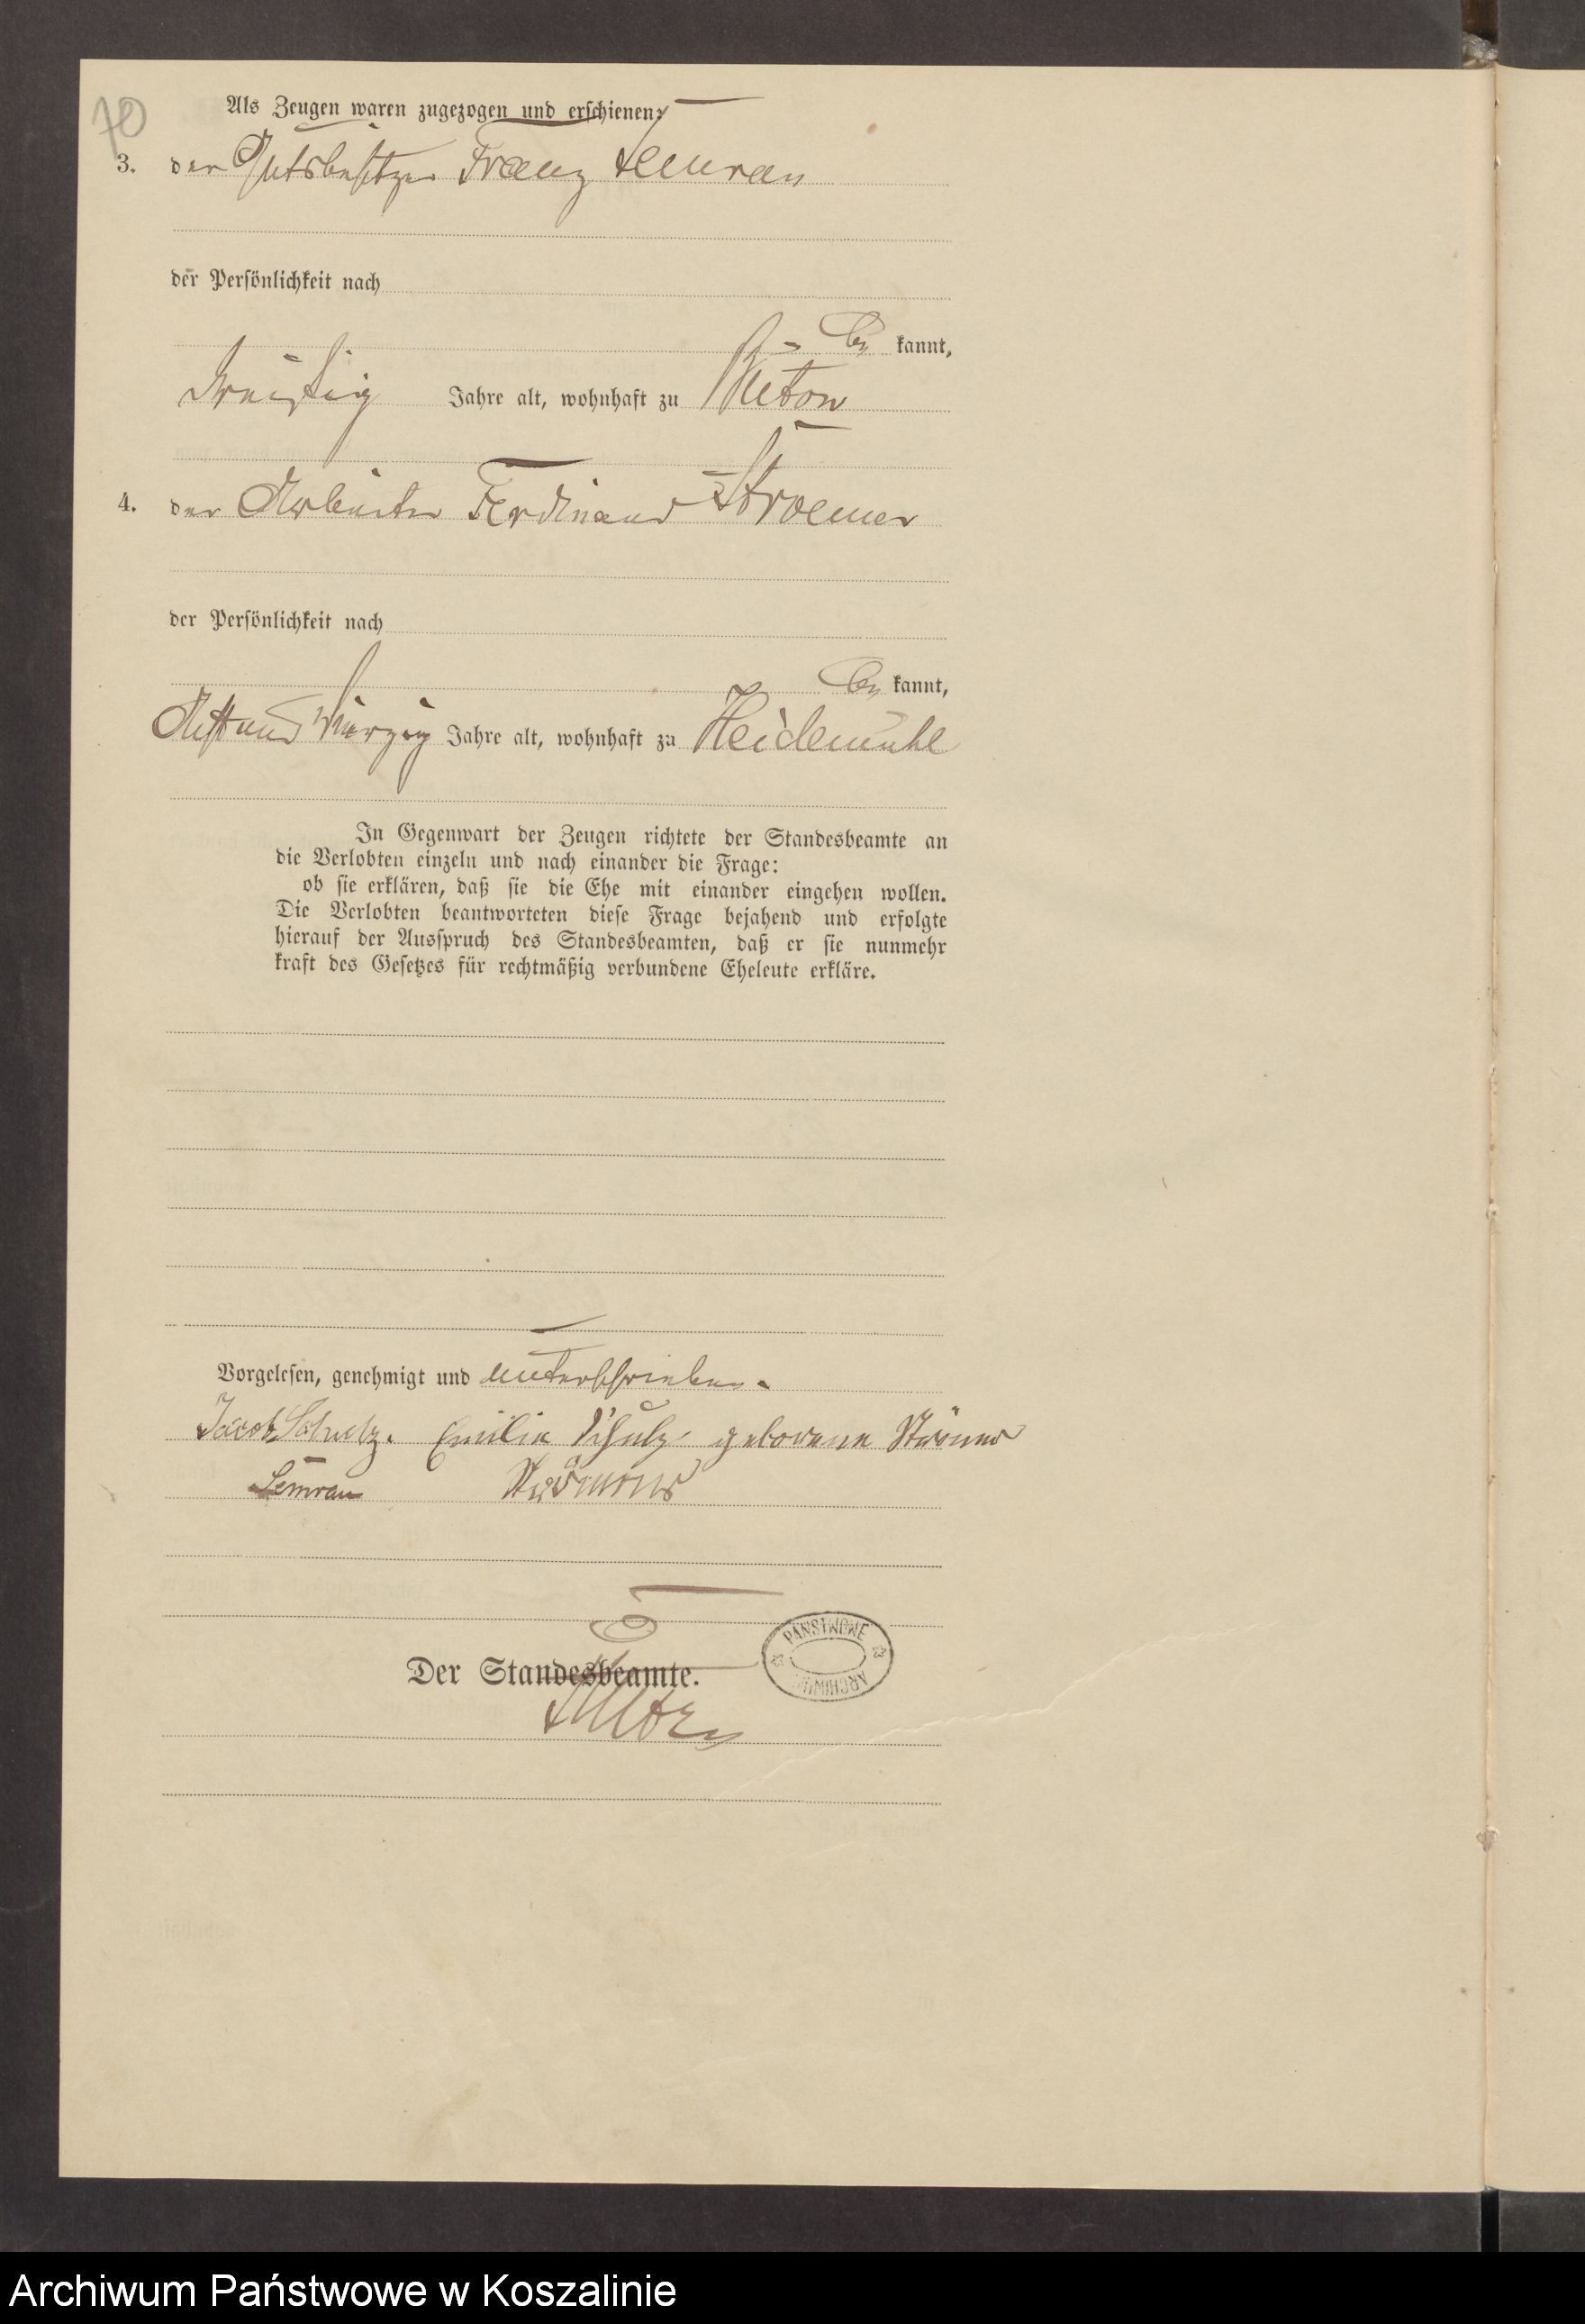 70
Als Zeugen waren zugezogen und erschienen:
3. der Gutsbesitzer Franz Semrau
der Persönlichkeit nach
be kannt,
dreißig Jahre alt, wohnhaft zu Woltow
4. der Arbeiter Ferdinand Stroemer
der Persönlichkeit nach
be kannt,
Acht und vierzig Jahre alt, wohnhaft zu Heidemühl
In Gegenwart der Zeugen richtete der Standesbeamte an
die Verlobten einzeln und nach einander die Frage:
ob sie erklären, daß sie die Ehe mit einander eingehen wollen.
Die Verlobten beantworteten diese Frage bejahend und erfolgte
hierauf der Ausspruch des Standesbeamten, daß er sie nunmehr
kraft des Gesetzes für rechtmäßig verbundene Eheleute erkläre.
Vorgelesen, genehmigt und unterschrieben.
Jacob Schulz. Emilie Schulz geborene Strömer
Semrau Strömer
Der Standesbeamte.
PAŃSTWOWE ARCHIWUM
Archiwum Państwowe w Koszalinie